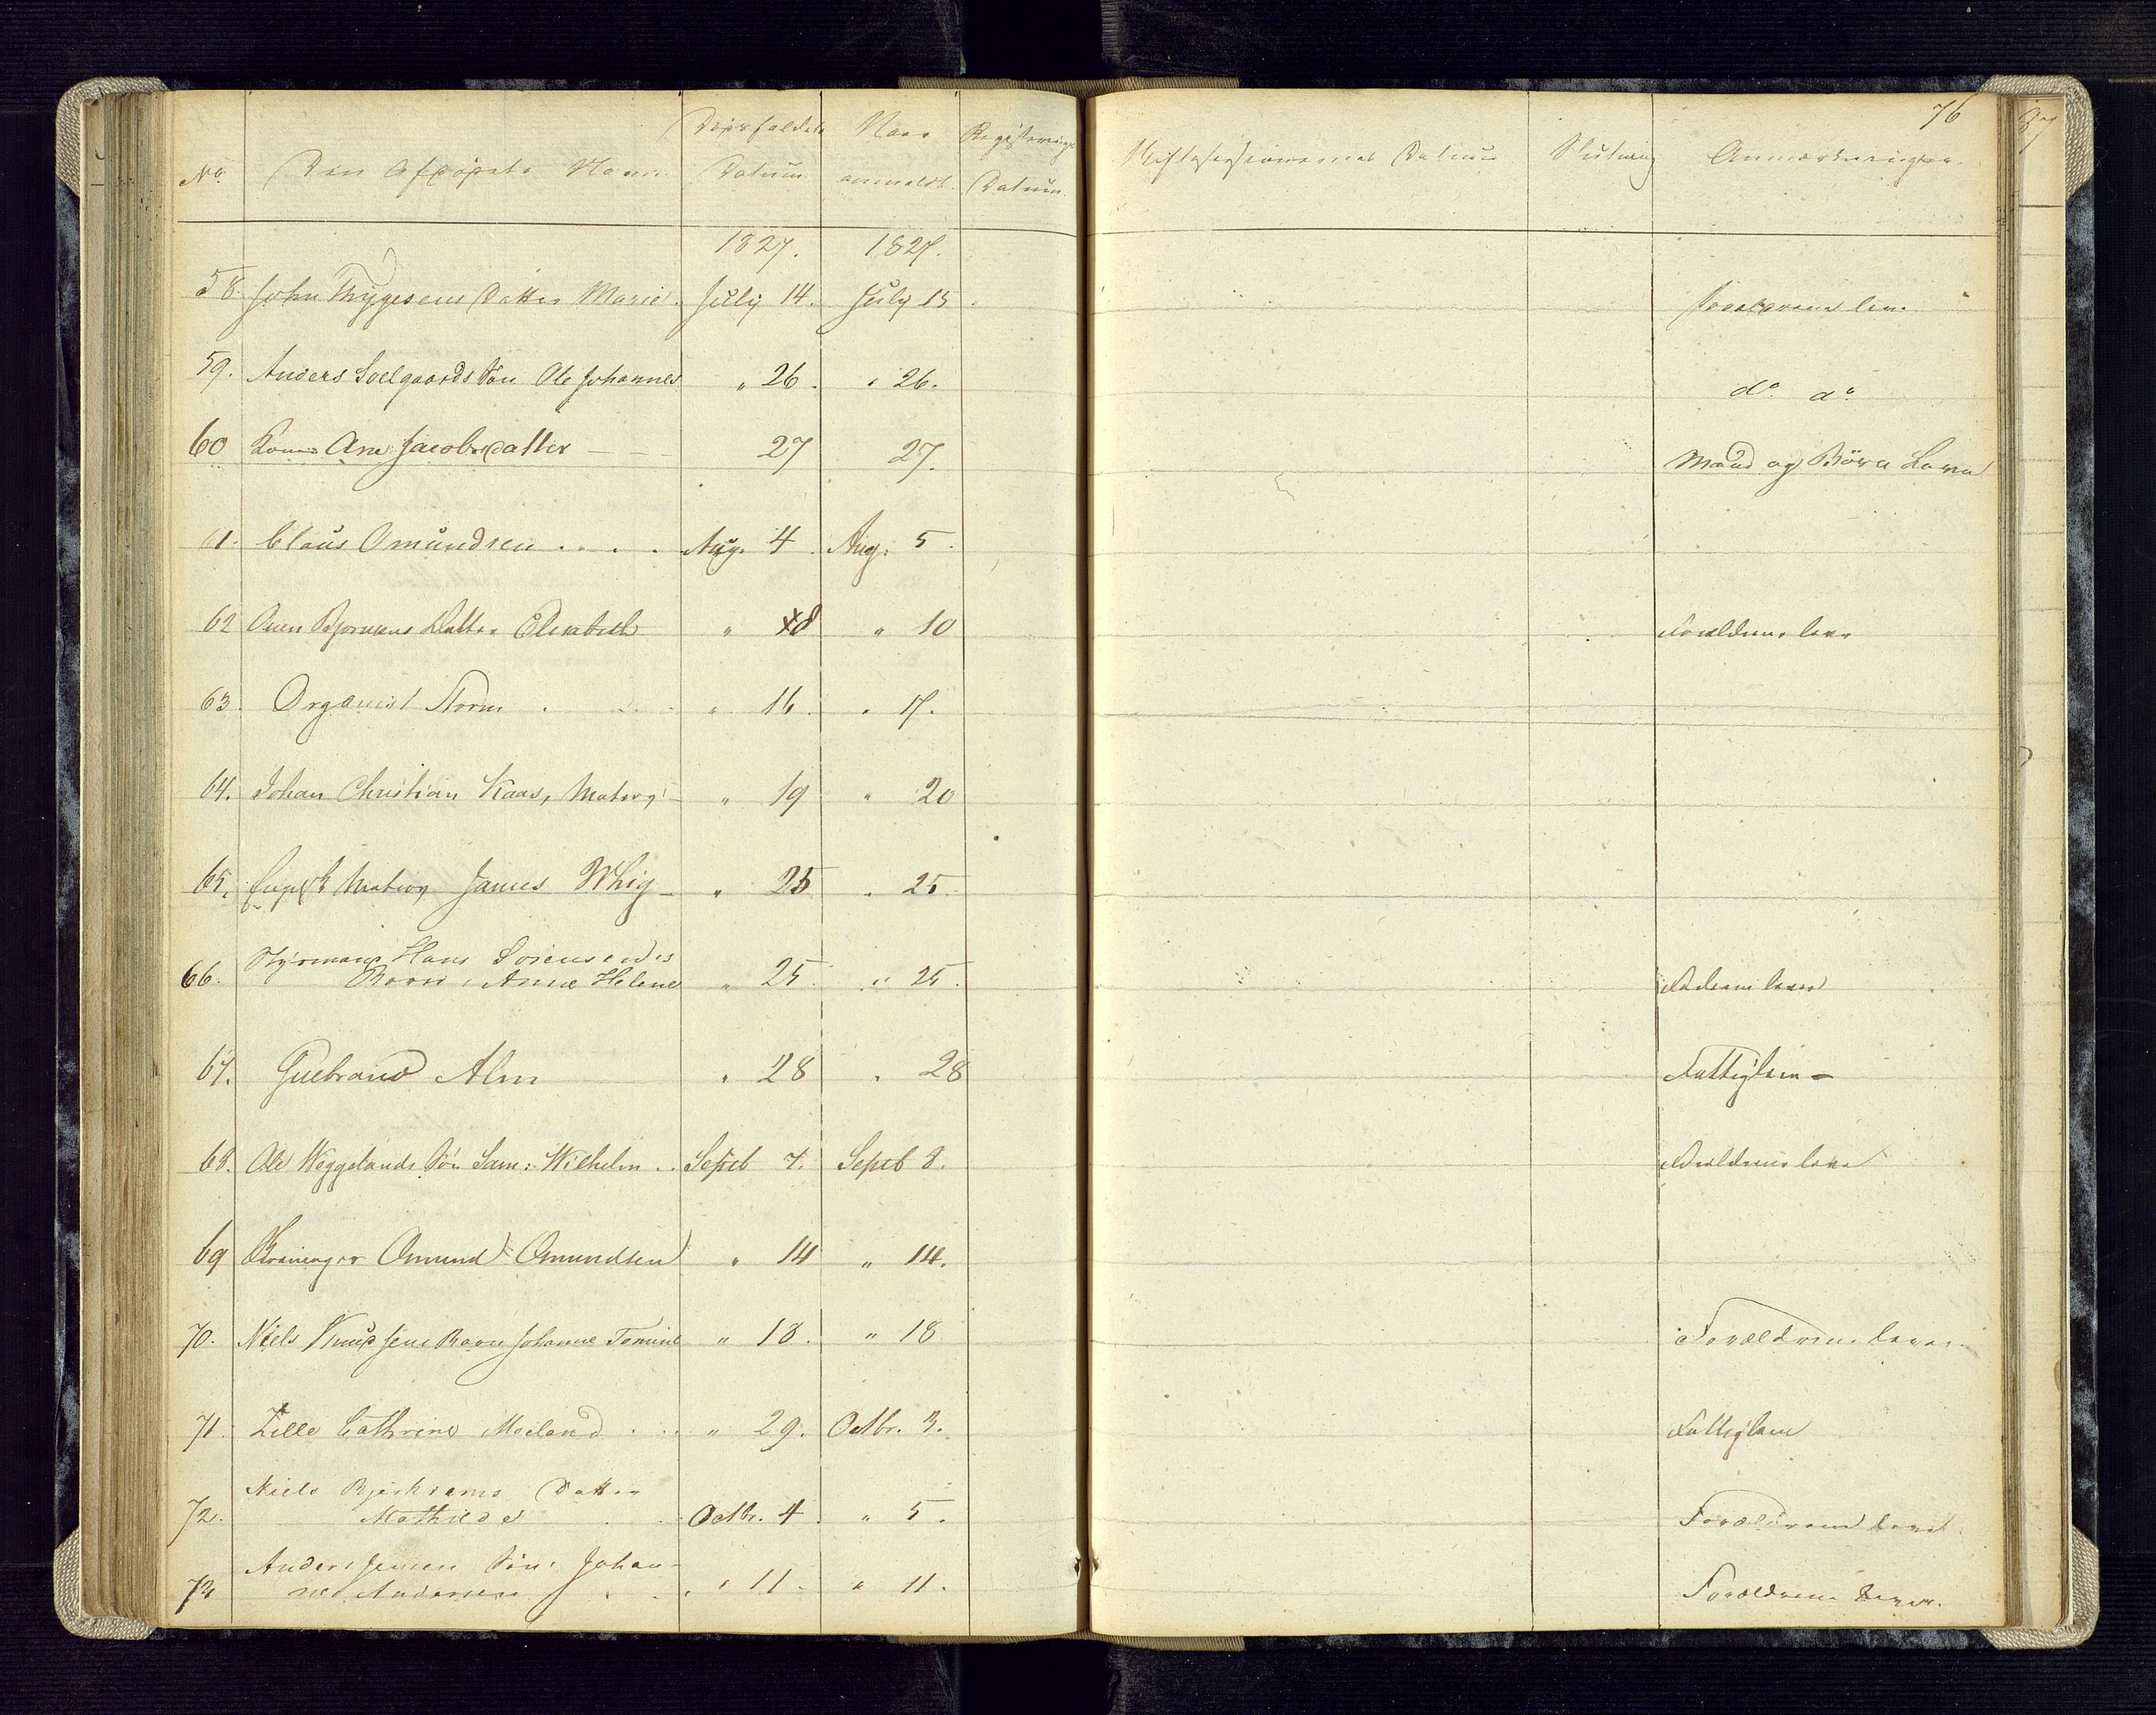 76
No. Den Afdødes Navn Dødsfaldets Datum Naar anmeldt Registerings Datum Skiftesessionernes Datum Slutning Anmærkninger
1827. 1827.
58. John Thygesens Datter Marie. July 14. July 15. Forældrene leve
59. Anders Soelgaards Søn Ole Johannes " 26. " 26. do do
60 Kone Ane Jacobsdatter 27 27. Mand og Börn Leve
61. Claus Omundsen . . . . Aug. 4. Aug. 5.
62 Bjørnsens Datter Elisabeth " 8 " 10 Forældrene leve
63. Organist Storm " 16. " 17.
64. Johan Christian Kaas, Matros " 19 " 20
65. Engelsk Matros James Whig " 25 " 25
66. Styrmand Hans Sørensens
Barn, Anne Helene " 25. " 25. Faderen lever
67. Gulbrand Alm " 28 " 28 Fattiglem
68. Ole Weggelands Søn Sam: Wilhelm . . Septb 7. Septb 8. Forældrene leve
69 Omund Omundsen " 14 " 14.
70. Niels Knudsens Barn Johanne Tomine " 18. " 18 Forældrene lever.
71. Zille Cathrine Meeland . . . " 29. Octbr. 3. Fattiglem
72. Niels Bjerkhems Datter
Mathilde Octbr. 4. " 5. Forældrene lever
73 Anders Jensens Søn Johan-
nes Andersen " 11. " 11. Forældrene lever.